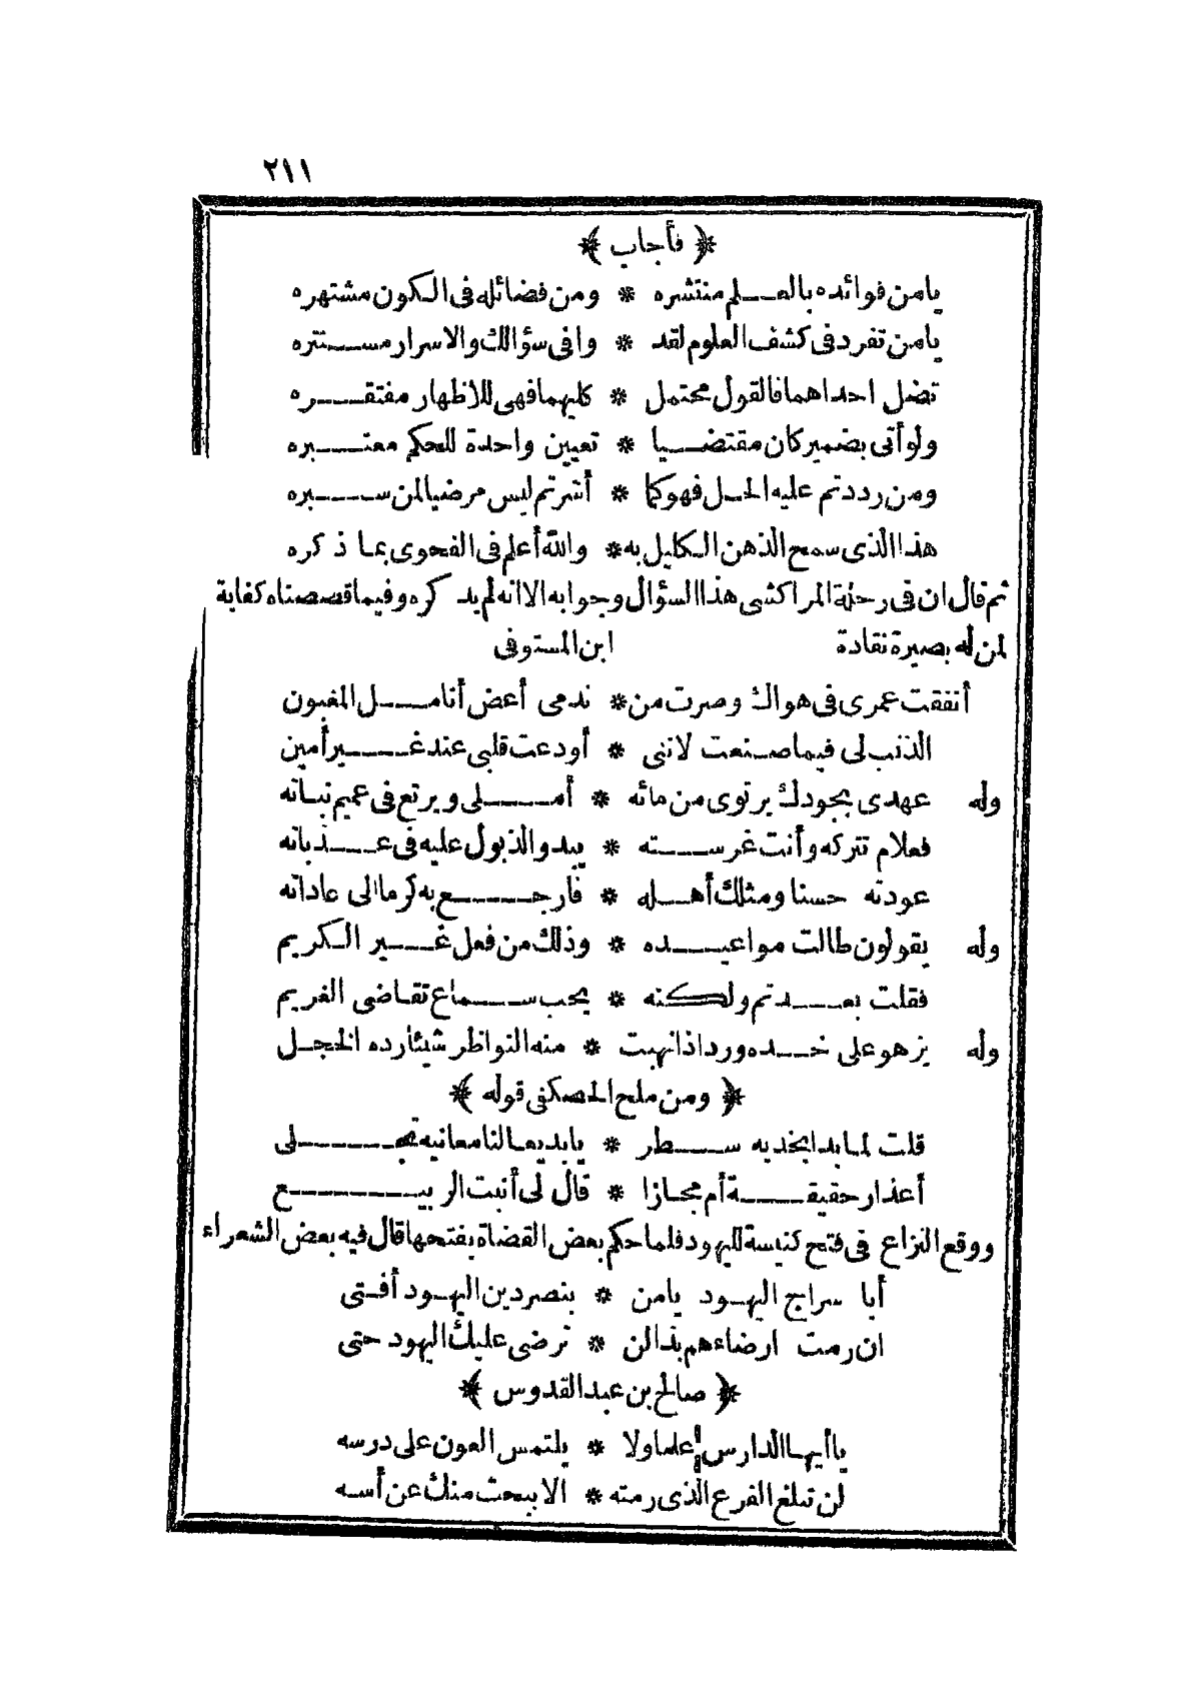 ٢١١
﴿ فأجاب ﴾
يامن فوائده بالعلم منتشره * ومن فضائله فى الكون مشتهره
يامن تفرد فى كشف العلوم لقد * وافى سؤالك والاسرار مستتره
تضل احداهما فالقول محتمل * كليهما فهى للاظهار مفتقره
ولو أتى بضمير كان مقتضيا * تعيين واحدة للحكم معتبره
ومن رددتم عليه الحل فهو كما * أشرتم ليس مرضيا لمن سبره
هذا الذى سمح الذهن الكليل به * والله أعلم فى الفحوى بما ذكره
ثم قال ان فى رحلة المراكشى هذا السؤال وجوابه الا انه لم يذكره وفيما قصصناه كفاية
لمن له بصيرة نقادة ابن المستوفى
أنفقت عمرى فى هواك وصرت من * ندمى أعض أنامل المغبون
الذنب لى فيما صنعت لاننى * أودعت قلبى عند غير أمين
وله عهدى بجودك يرتوى من مائه * أملى ويرتع فى عميم نباته
فعلام تتركه وأنت غرسته * يبدو الذبول عليه فى عذباته
عودته حسنا ومثلك أهله * فارجع به كرما الى عاداته
وله يقولون طالت مواعيده * وذلك من فعل غير الكريم
فقلت بعدتم ولكنه * يحب سماع تقاضى الغريم
وله يزهو على خده ورد اذا نهبت * منه النواظر شيئا رده الخجل
﴿ ومن ملح الحصكفى قوله ﴾
قلت لما بدا بخديه سطر * يا بديعا لنا معانيه تجلى
أعذار حقيقة أم مجازا * قال لى أنبت الربيع
ووقع النزاع فى فتح كنيسة لليهود فلما حكم بعض القضاة بفتحها قال فيه بعض الشعراء
أبا سراج اليهود يامن * بنصر دين اليهود أفتى
ان رمت ارضاءهم بذا لن * ترضى عليك اليهود حتى
﴿ صالح بن عبد القدوس ﴾
يا أيها الدارس علما ولا * يلتمس العون على درسه
لن تبلغ الفرع الذى رمته * الا ببحث منك عن أسه